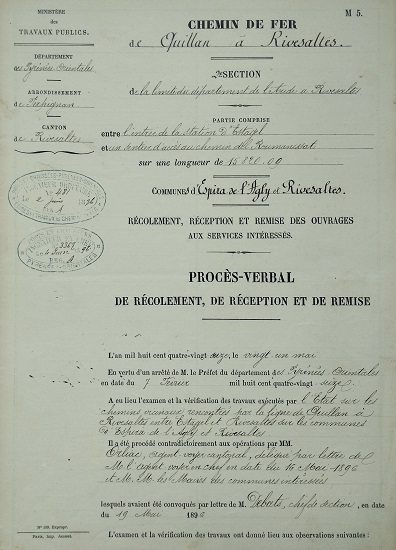 MINISTÈRE
des
TRAVAUX PUBLICS.
DÉPARTEMENT
des Pyrénées Orientales
ARRONDISSEMENT
de Perpignan
CANTON
de Rivesaltes
M 5.
CHEMIN DE FER
de Quillan à Rivesaltes.
2e SECTION
de la limite du département de l'Aude à Rivesaltes
PARTIE COMPRISE
entre l'entrée de la Station d'Estagel
et un centre d'accès au chemin del Roumanissat
sur une longueur de 15820.00
COMMUNES d'Espira de l'Agly et Rivesaltes.
RÉCOLEMENT, RÉCEPTION ET REMISE DES OUVRAGES
AUX SERVICES INTÉRESSÉS.
PROCÈS-VERBAL
DE RÉCOLEMENT, DE RÉCEPTION ET DE REMISE
L'an mil huit cent quatre-vingt seize, le vingt un mai
En vertu d'un arrêté de M. le Préfet du département des Pyrénées Orientales
en date du 7 Février mil huit cent quatre-vingt seize
A eu lieu l'examen et la vérification des travaux exécutés par l'Etat sur les
chemins vicinaux rencontrés par la ligne de Quillan à
Rivesaltes entre Estagel et Rivesaltes sur les communes
d'Espira de l'Agly et Rivesaltes
Il a été procédé contradictoirement aux opérations par MM.
agent voyer cantonal, délégué par lettre de
Mr l'agent voyer en chef en date du 16 Mai 1896
et M.M. les Maires des communes intéressées
lesquels avaient été convoqués par lettre de M. Debats, chef de section, en date
du 19 Mai 1896
L'examen et la vérification des travaux ont donné lieu aux observations suivantes :